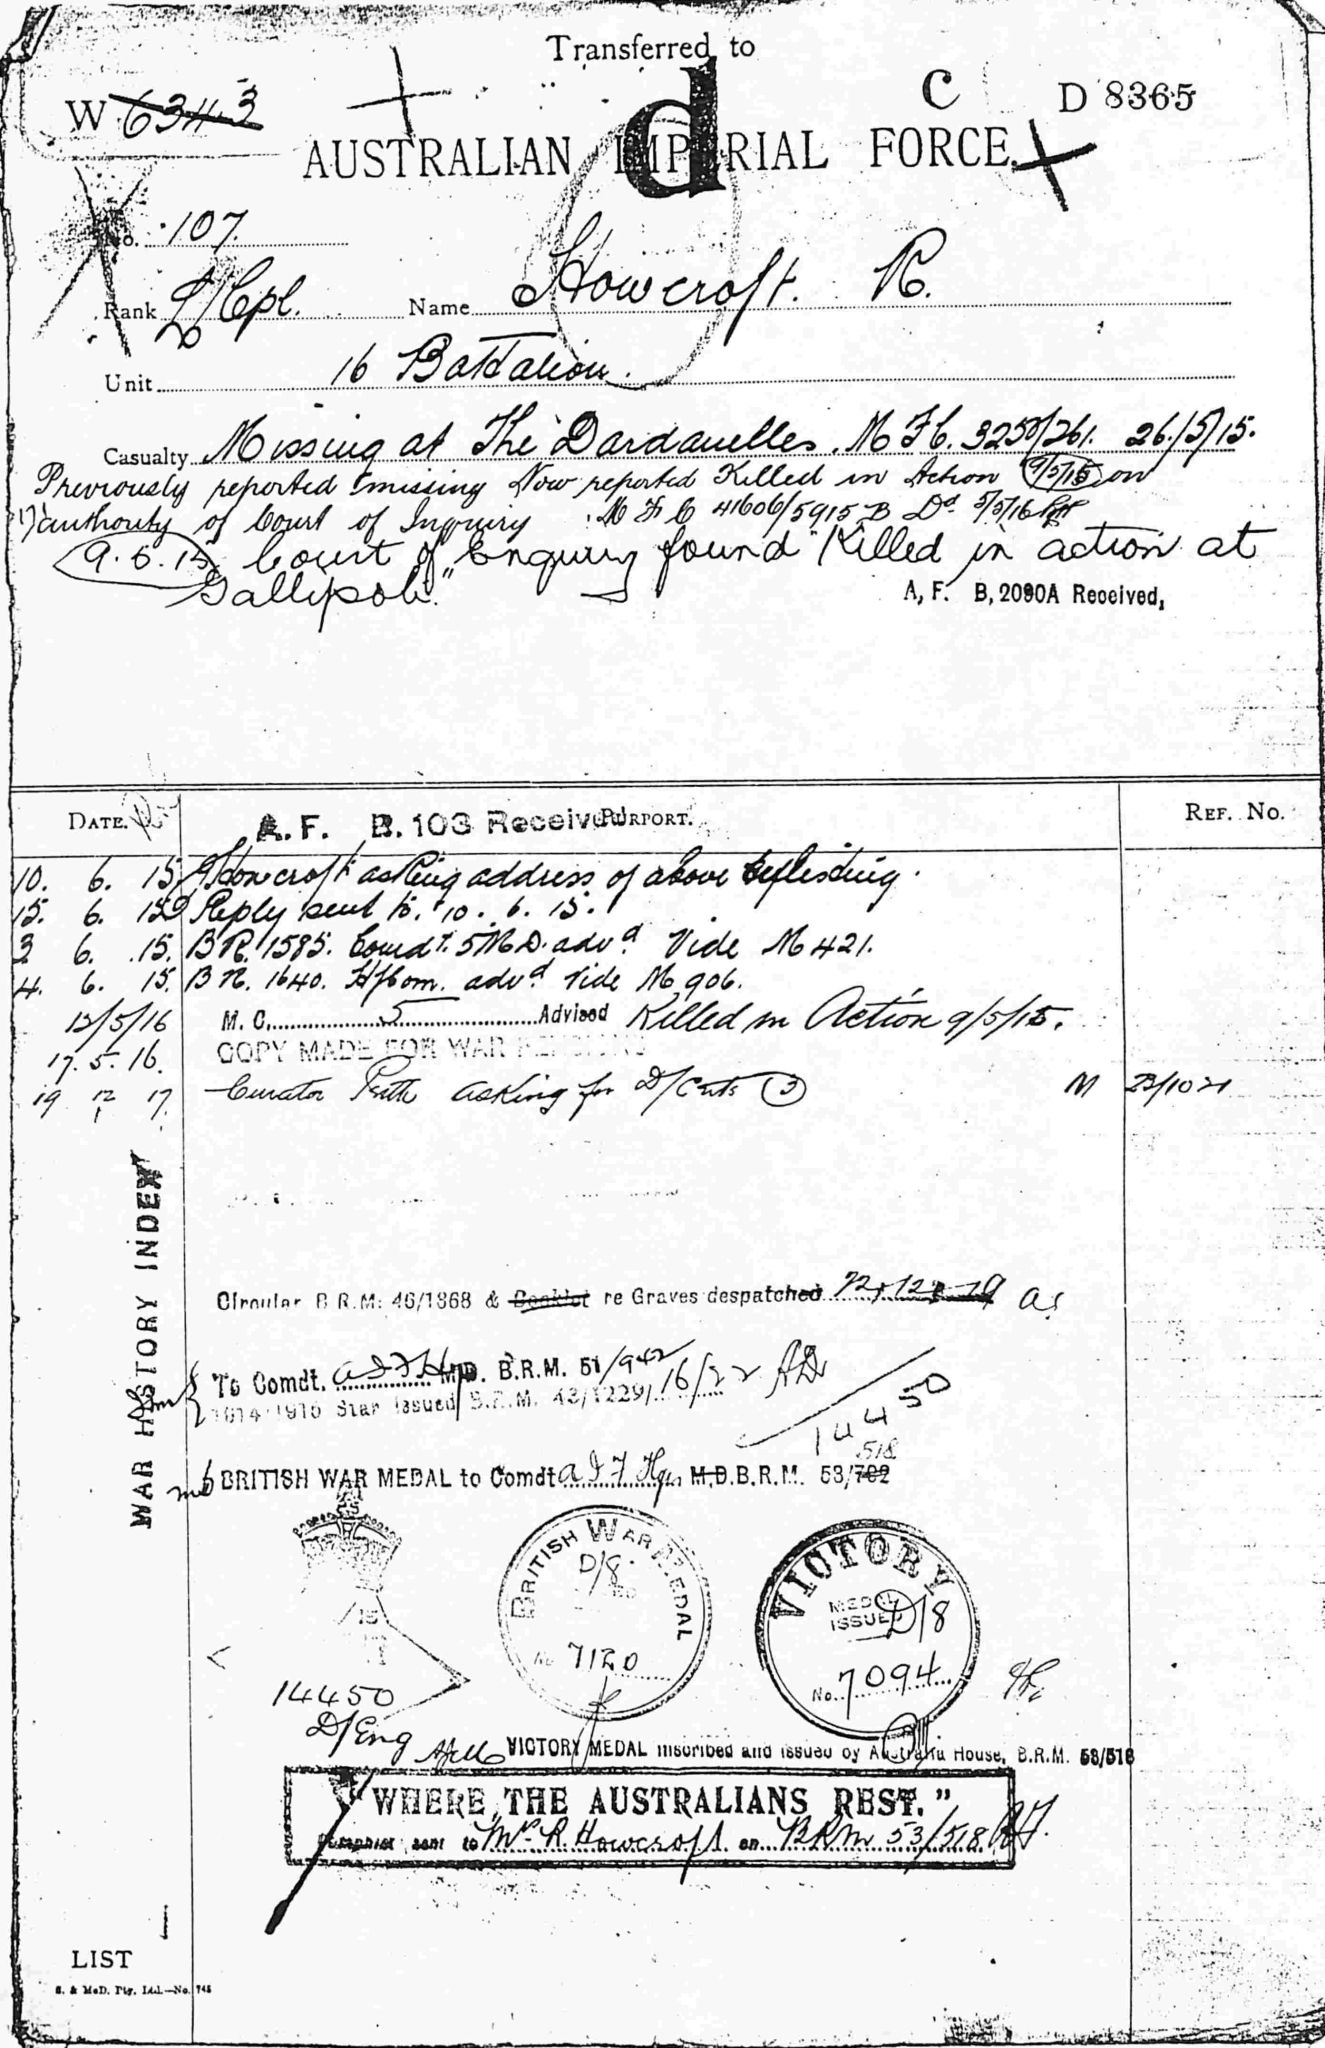 Transferred to
W 6343
d
C
D 8365
AUSTRALIAN IMPERIAL FORCE.
No. 107.
Rank L/Cpl. Name Howcroft. R.
Unit 16 Battalion.
Casualty Missing at The Dardanelles. M F C. 3250/261. 26/5/15.
Previously reported missing Now reported Killed in Action 9/5/15 on
authority of Court of Inquiry M F C 41606/5915 B Dd 5/5/16
9.5.15 Court of Enquiry found "Killed in action at
Gallipoli."
A. F. B. 2090A Received,
DATE. A. F. B. 103 Received PURPORT. REF. No.
10. 6. 15 Howcroft asking address of above
15. 6. 15 Reply sent to 10. 6. 15.
3 6. 15. B R. 1585. Comdt. 5 M D. advd Vide M 421.
4. 6. 15. B R. 1640. H/Com. advd Vide M 906.
13/5/16 M. C. 5 Advised Killed in Action 9/5/15.
17. 5. 16. COPY MADE FOR WAR PENSIONS
19 12 17. Curator Perth asking for D/Certs (3) M
WAR HISTORY INDEX
Circular B.R.M: 46/1868 & Booklet re Graves despatched
To Comdt. A I F Hqrs M.D. B.R.M. 51/942
1914/1915 Star issued B.R.M. 43/1229/ 16/22
14450
518
BRITISH WAR MEDAL to Comdt A I F Hqrs M.D. B.R.M. 53/702
BRITISH WAR MEDAL
D/8.
No 7120
VICTORY
MEDAL
ISSUED D/8
No. 7094
/15
14450
D/Eng
VICTORY MEDAL inscribed and issued by Australia House, B.R.M. 53/518
"WHERE THE AUSTRALIANS REST."
Pamphlet sent to Mr. R. Howcroft. on BRM 53/518
LIST
S. & McD. Pty. Ltd.—No. 745